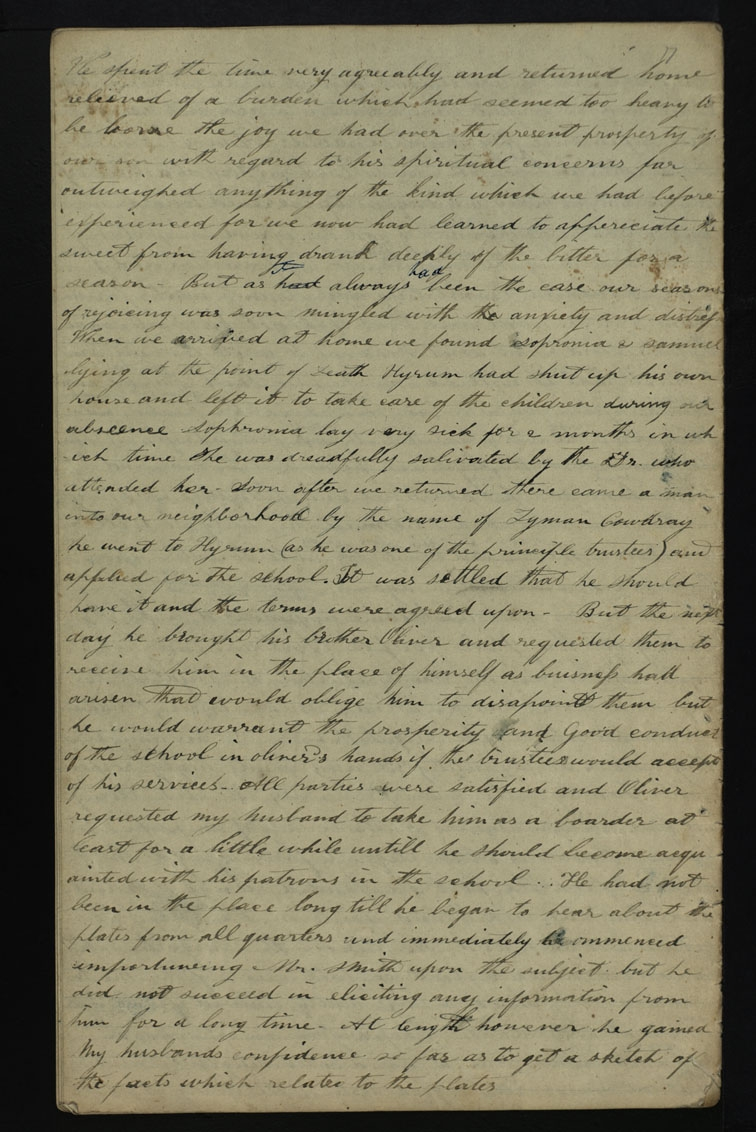 We spent the time very agreeably and returned home
releived of a burden which had seemed too heavy to
be borne the joy we had over the present prosperty of
our son with regard to his spiritual concerns far
outweighed anything of the kind which we had before
experienced for we now had learned to appereciate the
sweet from having drank deeply of the bitter for a
season But as it had always had been the case our seasons
of rejoicing was soon mingled with the anxiety and distress
When we arrived at home we found sopronia & samuel
lying at the point of death Hyrum had shut up his own
house and left it to take care of the children during our
abscence Sophronia lay very sick for 2 months in wh
ich time she was dreadfully salivated by the Dr. who
attended her- Soon after we returned there came a man
into our neighborhood by the name of Lyman Cowdray
he went to Hyrum (as he was one of the principle trustees) and
applied for the school. It was settled that he should
have it and the terms were agreed upon- But the next
day he brought his brother Oliver and requested them to
receive him in the place of himself as buisness had
arisen that would oblige him to disapoint them but
he would warrant the prosperity and Good conduct
of the school in oliver's hands if the trustees would accept
of his services- All parties were satisfied and Oliver
requested my husband to take him as a boarder at
least for a little while untill he should become acqu
ainted with his patrons in the school.. He had not
been in the place long till he began to hear about the
plates from all quarters and immediately he commenced
importuneing Mr. Smith upon the subject but he
did not succeed in eliciting any information from
him for a long time- At length however he gained
My husbands confidence so far as to get a sketch of
the facts which relates to the plates